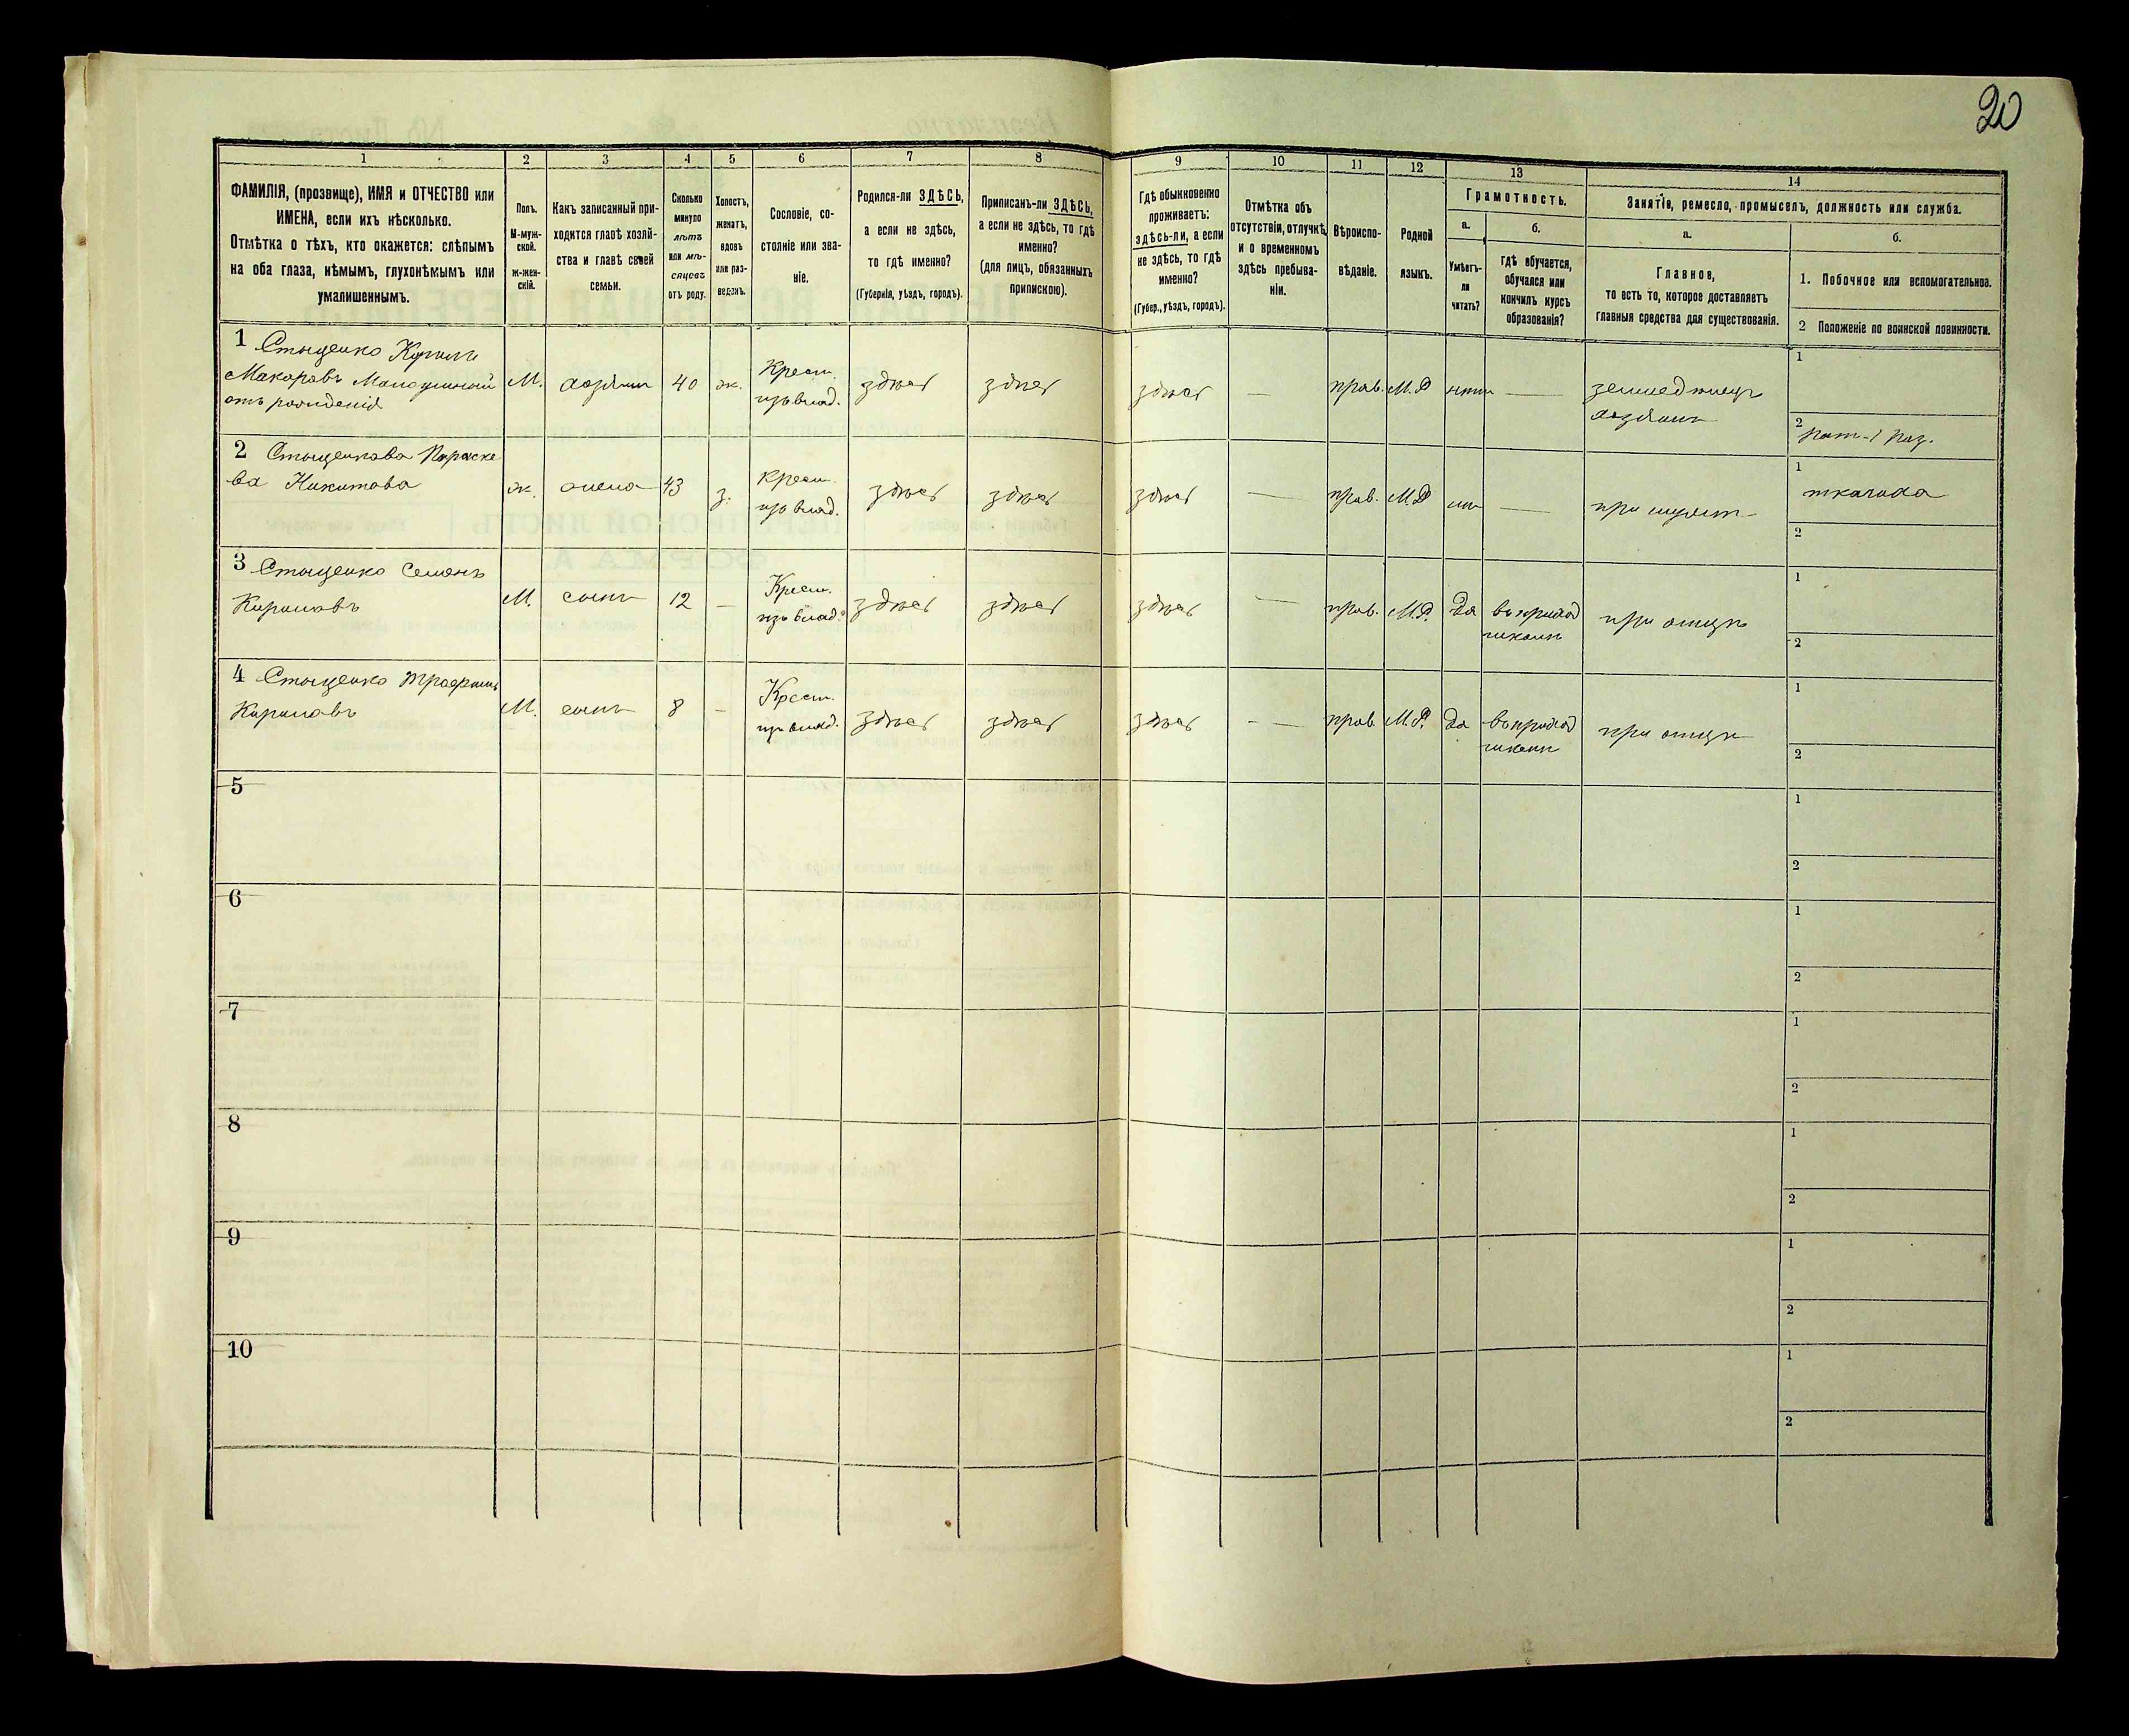 20
1 2 3 4 5 6 7 8 9 10 11 12 13 14
ФАМИЛІЯ, (прозвище), ИМЯ и ОТЧЕСТВО или
ИМЕНА, если ихъ нѣсколько.
Отмѣтка о тѣхъ, кто окажется: слѣпымъ
на оба глаза, нѣмымъ, глухонѣмымъ или
умалишеннымъ.
Полъ.
М-муж-
ской.
ж-жен-
скій.
Какъ записанный при-
ходится главѣ хозяй-
ства и главѣ своей
семьи.
Сколько
минуло
лѣтъ
или мѣ-
сяцевъ
отъ роду.
Холостъ,
женатъ,
вдовъ
или раз-
веденъ.
Сословіе, со-
стояніе или зва-
ніе.
Родился-ли ЗДѢСЬ,
а если не здѣсь,
то гдѣ именно?
(Губернія, уѣздъ, городъ).
Приписанъ-ли ЗДѢСЬ,
а если не здѣсь, то гдѣ
именно?
(для лицъ, обязанныхъ
припискою).
Гдѣ обыкновенно
проживаетъ:
здѣсь-ли, а если
не здѣсь, то гдѣ
именно?
(Губер., уѣздъ, городъ).
Отмѣтка объ
отсутствіи, отлучкѣ
и о временномъ
здѣсь пребыва-
ніи.
Вѣроиспо-
вѣданіе.
Родной
языкъ.
Грамотность.
а.
Умѣетъ-
ли
читать?
б.
гдѣ обучается,
обучался или
кончилъ курсъ
образованія?
Занятіе, ремесло, промыселъ, должность или служба.
а.
Главное,
то есть то, которое доставляетъ
главныя средства для существованія.
б.
1. Побочное или вспомогательное.
2 Положеніе по воинской повинности.
1 Стыценко Кирилъ
Макаровъ
отъ рожденія
М. хозяинъ 40 ж.
Крест.
изъ влад.
здѣсь здѣсь здѣсь — прав. М.Р. нѣтъ —
земледѣлецъ
хозяинъ
1
2
рат. 1 раз.
2 Стыценкова Параске
ва Никитова
ж. жена 43 з.
крест.
изъ влад.
здѣсь здѣсь здѣсь — прав. М.Р. —
при мужѣ
1
ткачиха
2
3 Стыценко Семенъ
Кириловъ
М. сынъ 12 —
Крест.
изъ влад.
здѣсь здѣсь здѣсь — прав. М.Р. да
въ приход
школѣ
при отцѣ
1
2
4 Стыценко Трофимъ
Кириловъ
М. сынъ 8 —
Крест.
изъ влад.
здѣсь здѣсь здѣсь — — прав. М.Р. да
въ приход
школѣ
при отцѣ
1
2
5
1
2
6
1
2
7
1
2
8
1
2
9
1
2
10
1
2